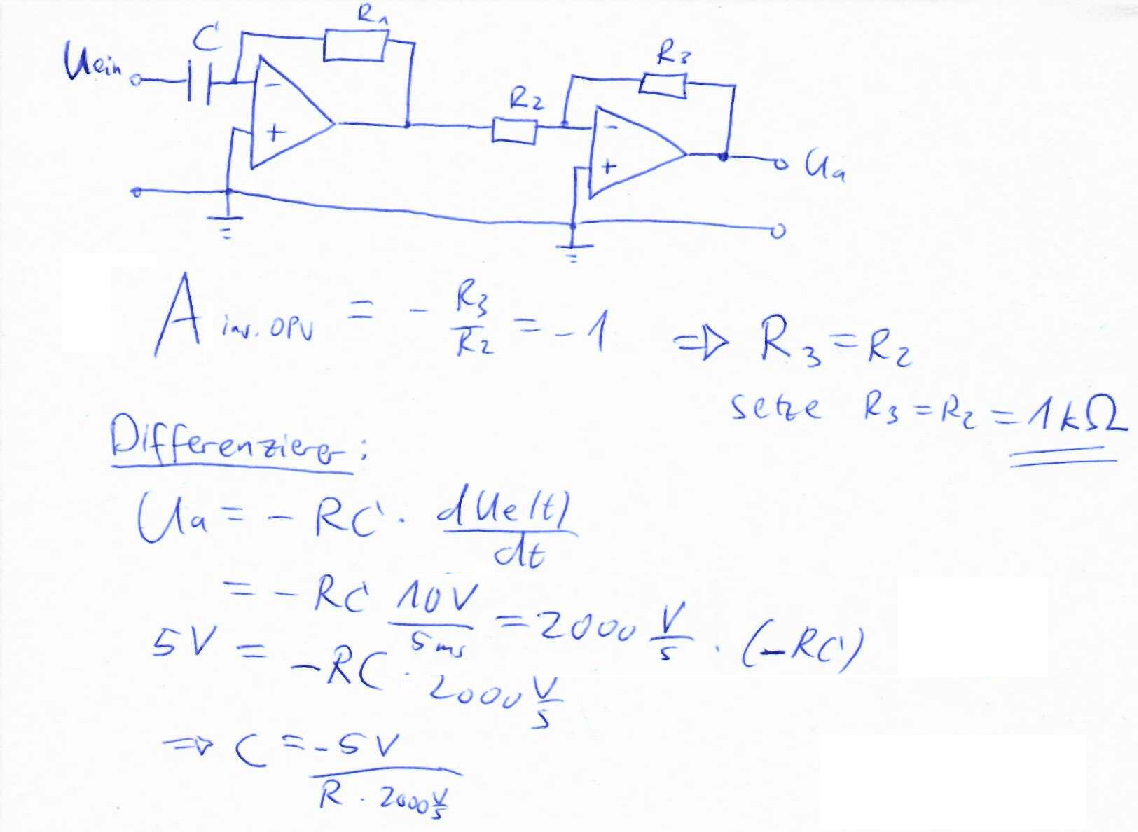 C R1
Uein
R3
R2
- +
- +
Ua
A inv. OPV = - R3/R2 = -1 => R3 = R2
setze R3 = R2 = 1kΩ
Differenzierer:
Ua = - RC · dUe(t)/dt
= - RC 10V/5ms = 2000 V/s · (-RC)
5V = -RC · 2000 V/s
=> C = -5V/(R · 2000 V/s)